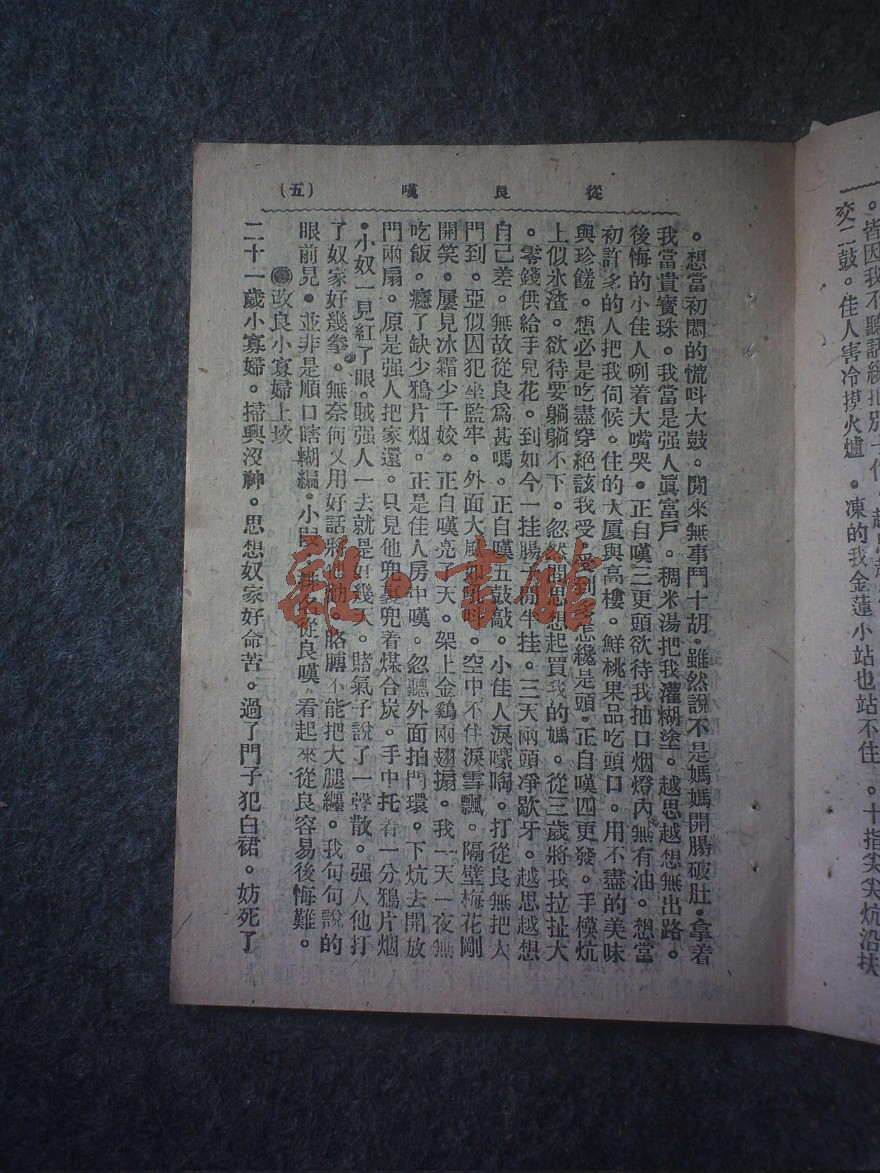 。皆因我不聽話纔把別
交二鼓。佳人害冷摸火爐。凍的我金蓮小站也站不住。十指尖尖炕沿扶
從良嘆 (五)
。想當初悶的慌呌大鼓。閒來無事鬥十胡。雖然說不是媽媽開腸破肚。拿着
我當貴寳珠。我當是强人眞富戶。稠米湯把我灌糊塗。越思越想無出路。
後悔的小佳人咧着大嘴哭。正自嘆三更頭欲待我抽口烟燈內無有油。想當
初許多的人把我伺候。住的大厦與高樓。鮮桃果品吃頭口。用不盡的美味
與珍饈。想必是吃盡穿絕該我受。受到多怎纔是頭。正自嘆四更發。手模炕
上似氷渣。欲待要躺躺不下。忽然間思想起買我的媽。從三歲將我拉扯大
。零錢供給手兒花。到如今一挂腸子閒半挂。三天兩頭凈歇牙。越思越想
自己差。無故從良爲甚嗎。正自嘆五鼓敲。小佳人淚嚎啕。打從良無把大
門到。亞似囚犯坐監牢。外面大風 空中不住淚雪飄。隔壁梅花剛
開笑。屢見冰霜少千姣。正自嘆亮了天。架上金鷄兩翅搧。我一天一夜無
吃飯。癮了缺少鴉片烟。正是佳人房中嘆。忽聽外面拍門環。下炕去開放
門兩扇。原是强人把家還。只見他兜裏兜着煤合炭。手中托着一分鴉片烟
。小奴一見紅了眼。賊强人一去就是好幾天。賭氣子說了一聲散。强人他打
了奴家好幾拳。無奈何又用好話將他勸。胳膊不能把大腿纏。我句句說的
眼前見。並非是順口瞎糊編。小 名從良嘆。看起來從良容易後悔難。
改良小寡婦上坟
二十一歲小寡婦。掃興沒神。思想奴家好命苦。過了門子犯白裙。妨死了
雜·書館